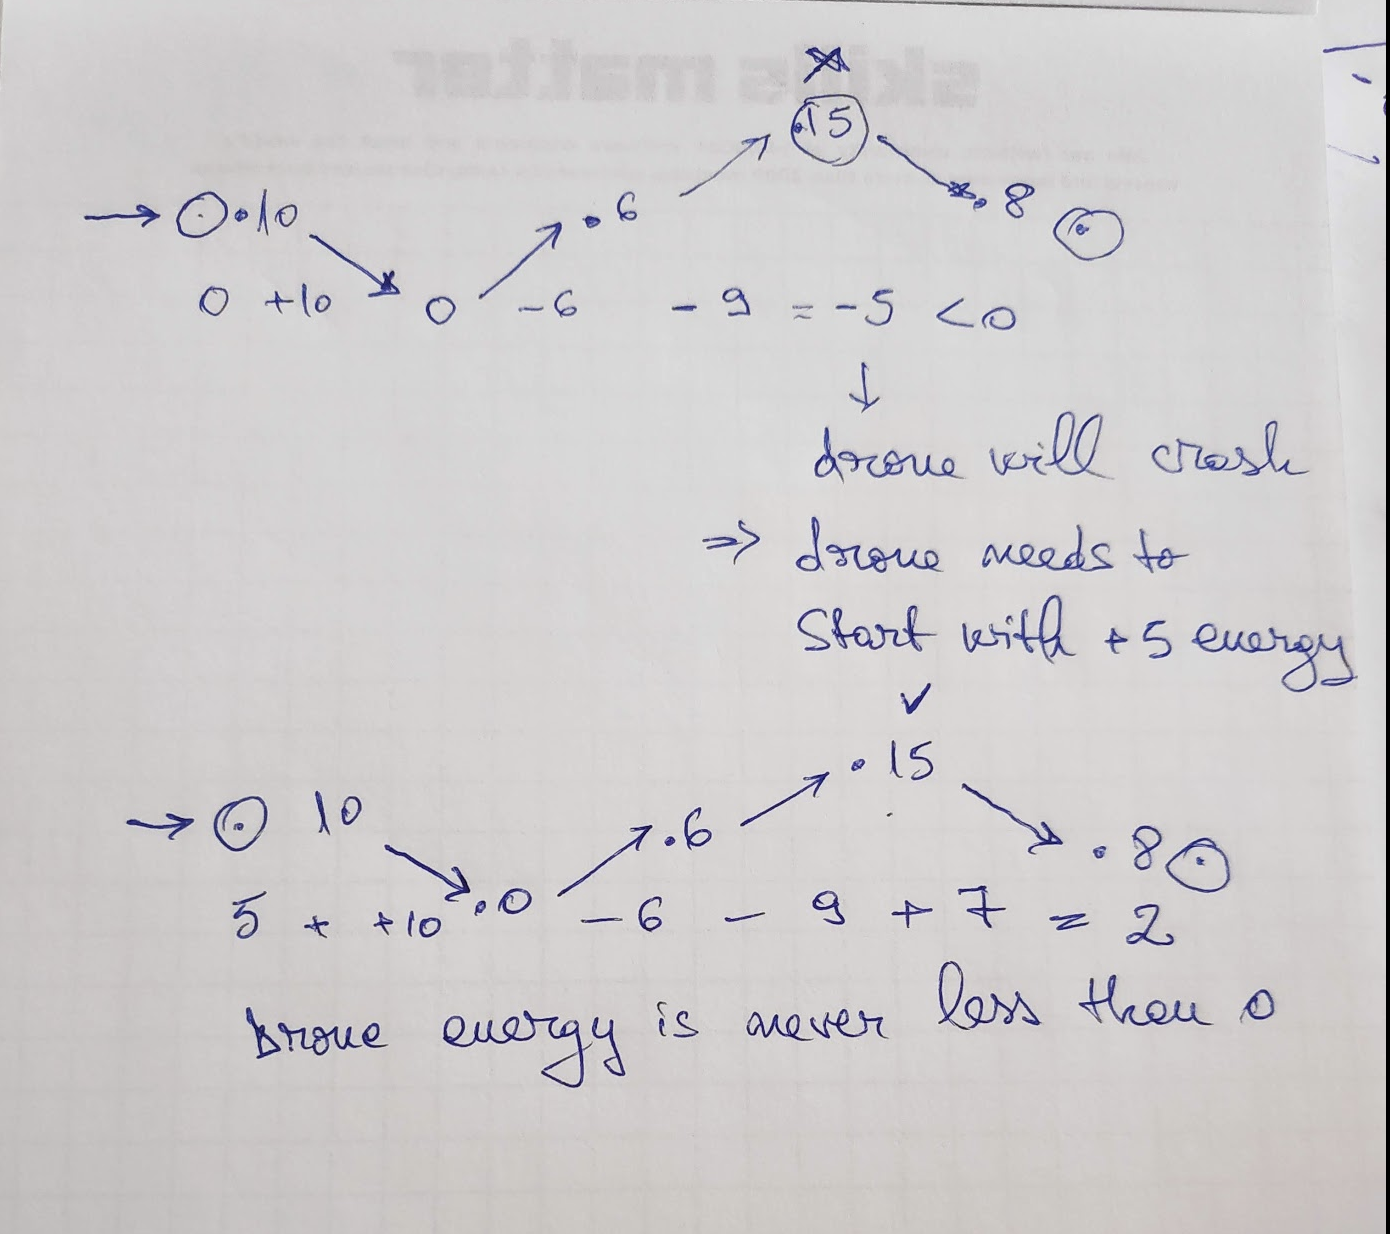 .15
→ .10 .6 .8
0 +10 0 -6 - 9 = -5 <0
↓
drone will crash
⇒ drone needs to
Start with +5 energy
✓
.15
→ 10 .6 .8
5 + +10 .0 -6 - 9 + 7 = 2
Drone energy is never less then 0
skills matter